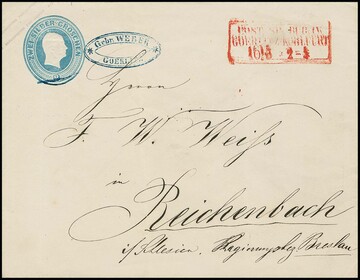 ZWEI SILBER-GROSCHEN
Gebr. WEBER
GOERLITZ
POST BERLIN
16|5 2-3
Herrn
F. W. Weiss
in
Reichenbach
i/Schlesien. Regierungsbez. Breslau